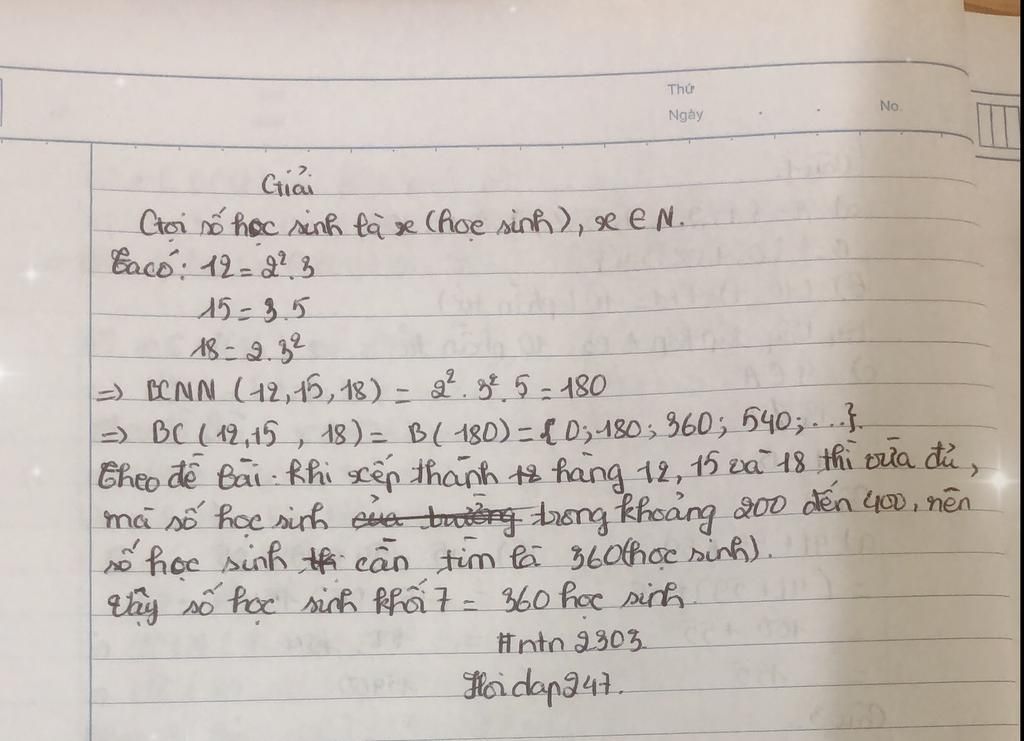 Thứ
Ngày . . No.
Giải
Gọi số học sinh là x (học sinh), x ∈ N.
Ta có: 12 = 2². 3
15 = 3.5
18 = 2.3²
=> BCNN (12,15,18) = 2². 3². 5 = 180
=> BC (12,15, 18) = B(180) = {0; 180; 360; 540; ...}.
Theo đề bài. Khi xếp thành hàng 12, 15 và 18 thì vừa đủ,
mà số học sinh của trường trong khoảng 200 đến 400, nên
số học sinh cần tìm là 360 (học sinh).
Vậy số học sinh khối 7 = 360 học sinh.
#ntn2303
Hoidap247.